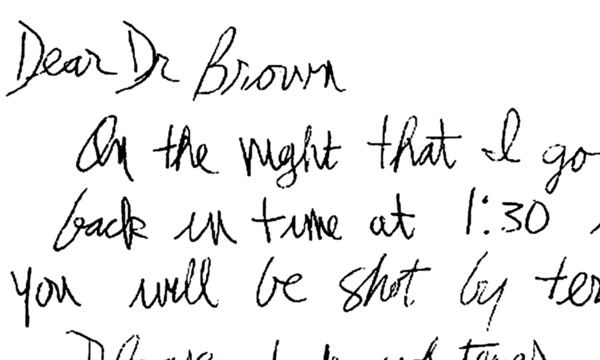 Dear Dr Brown
On the night that I go
back in time at 1:30
you will be shot by ter